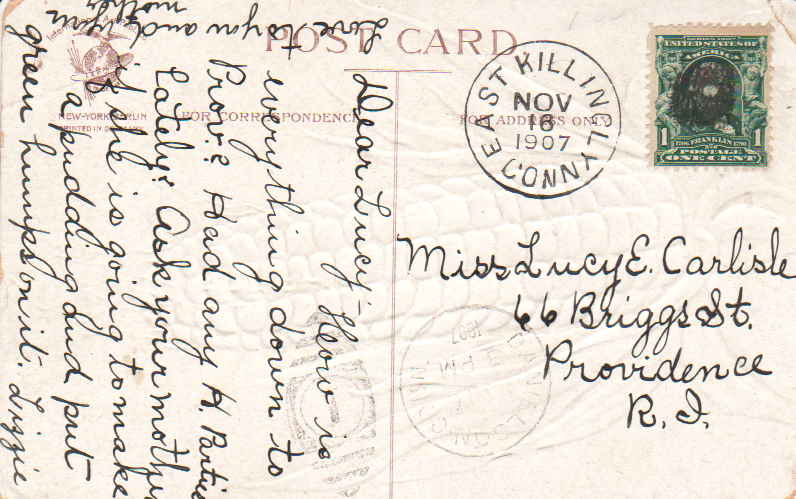 POST CARD
NEW-YORK BERLIN
PRINTED IN
FOR CORRESPONDENCE
FOR ADDRESS ONLY
EAST KILLINGLY
CONN.
NOV
16
1907
UNITED STATES OF
AMERICA
FRANKLIN
1 1
POSTAGE
ONE CENT
Miss Lucy E. Carlisle
66 Briggs St.
Providence
R. I.
DANIELSON
1907
Dear Lucy - How is
everything down to
Prov.? Had any H. Parties
lately? Ask your mother
if she is going to make
a pudding and put
green humps on it. Lizzie
Love to you and your
mother